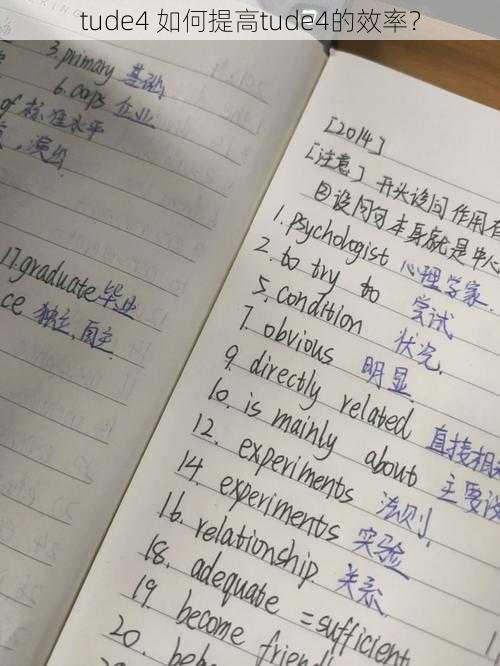 tude4 如何提高tude4的效率？
3.primary 基础
6.oops 企业
of 标准水平
演的
17.graduate 毕业
ce 独立,自主
[2014]
[注意] 开头设问作用在
②设问句本身就是中心
1. psychologist 心理学家.
2. to try to 尝试
5. condition 状况.
7. obvious 明显
9. directly related 直接相
10. is mainly about 主要
12. experiments 法则.
14. experiments 实验
16. relationship 关系.
18. adequate =sufficient
19. become
20.